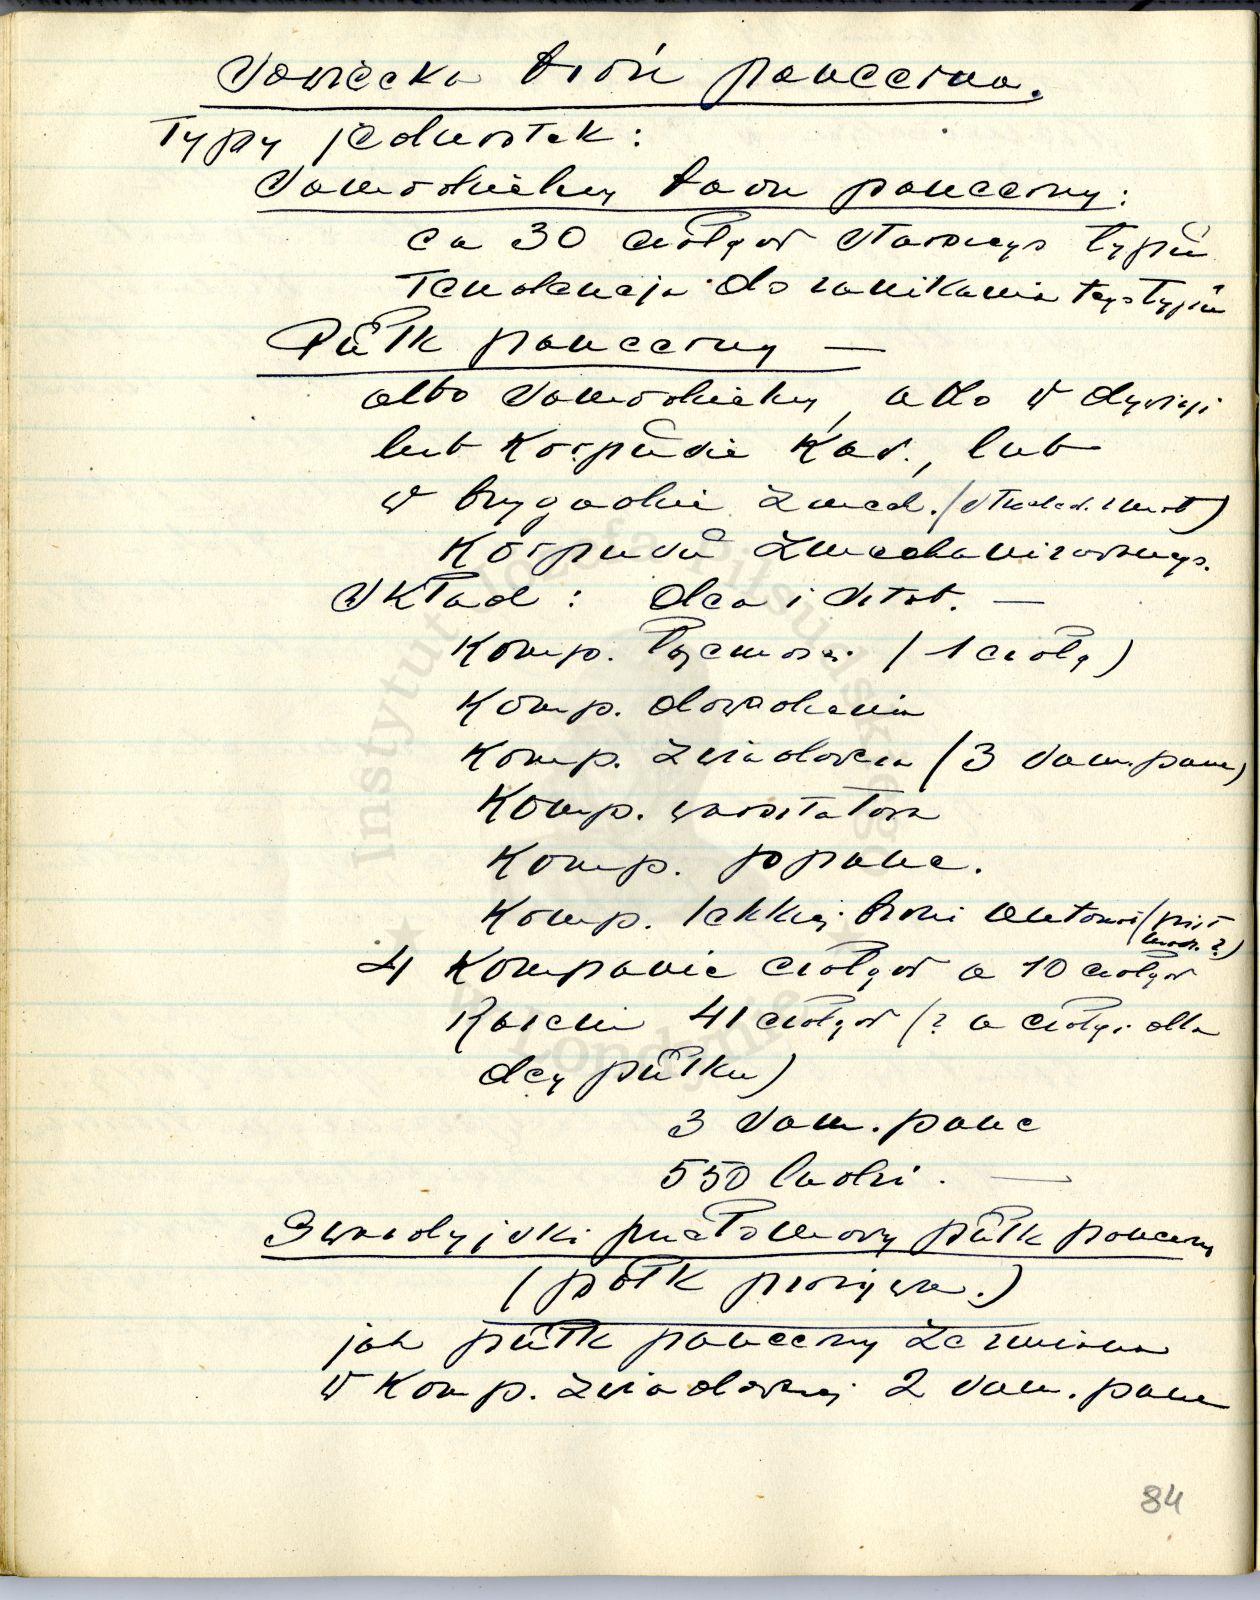 Sowiecka broń pancerna.
Typy jednostek:
Samodzielny baon pancerny:
ca 30 czołgów starszego typu
Tendencja do zanikania tego typu
Pułk pancerny —
albo samodzielny, albo w dywizji
lub Korpusie Kaw., lub
w brygadzie zmech. /
Korpusu Zmechanizowanego.
Skład: dca i sztab. —
Komp. łączności (1 czołg)
Komp. dowodzenia
Komp. zwiadowcza (3 sam. panc)
Komp. warsztatowa
Komp. ppanc.
Komp. lekkiej broni automat (
4 Kompanie czołgów a 10 czołgów
Razem 41 czołgów (? a czołg dla
dcy pułku)
3 sam. panc
550 ludzi. —
Gwardyjski przełomowy pułk pancerny
(półk prorywa.)
jak pułk pancerny ze zmianą
w Komp. zwiadowczej 2 sam. panc
84
Instytut Józefa Piłsudskiego
w Londynie